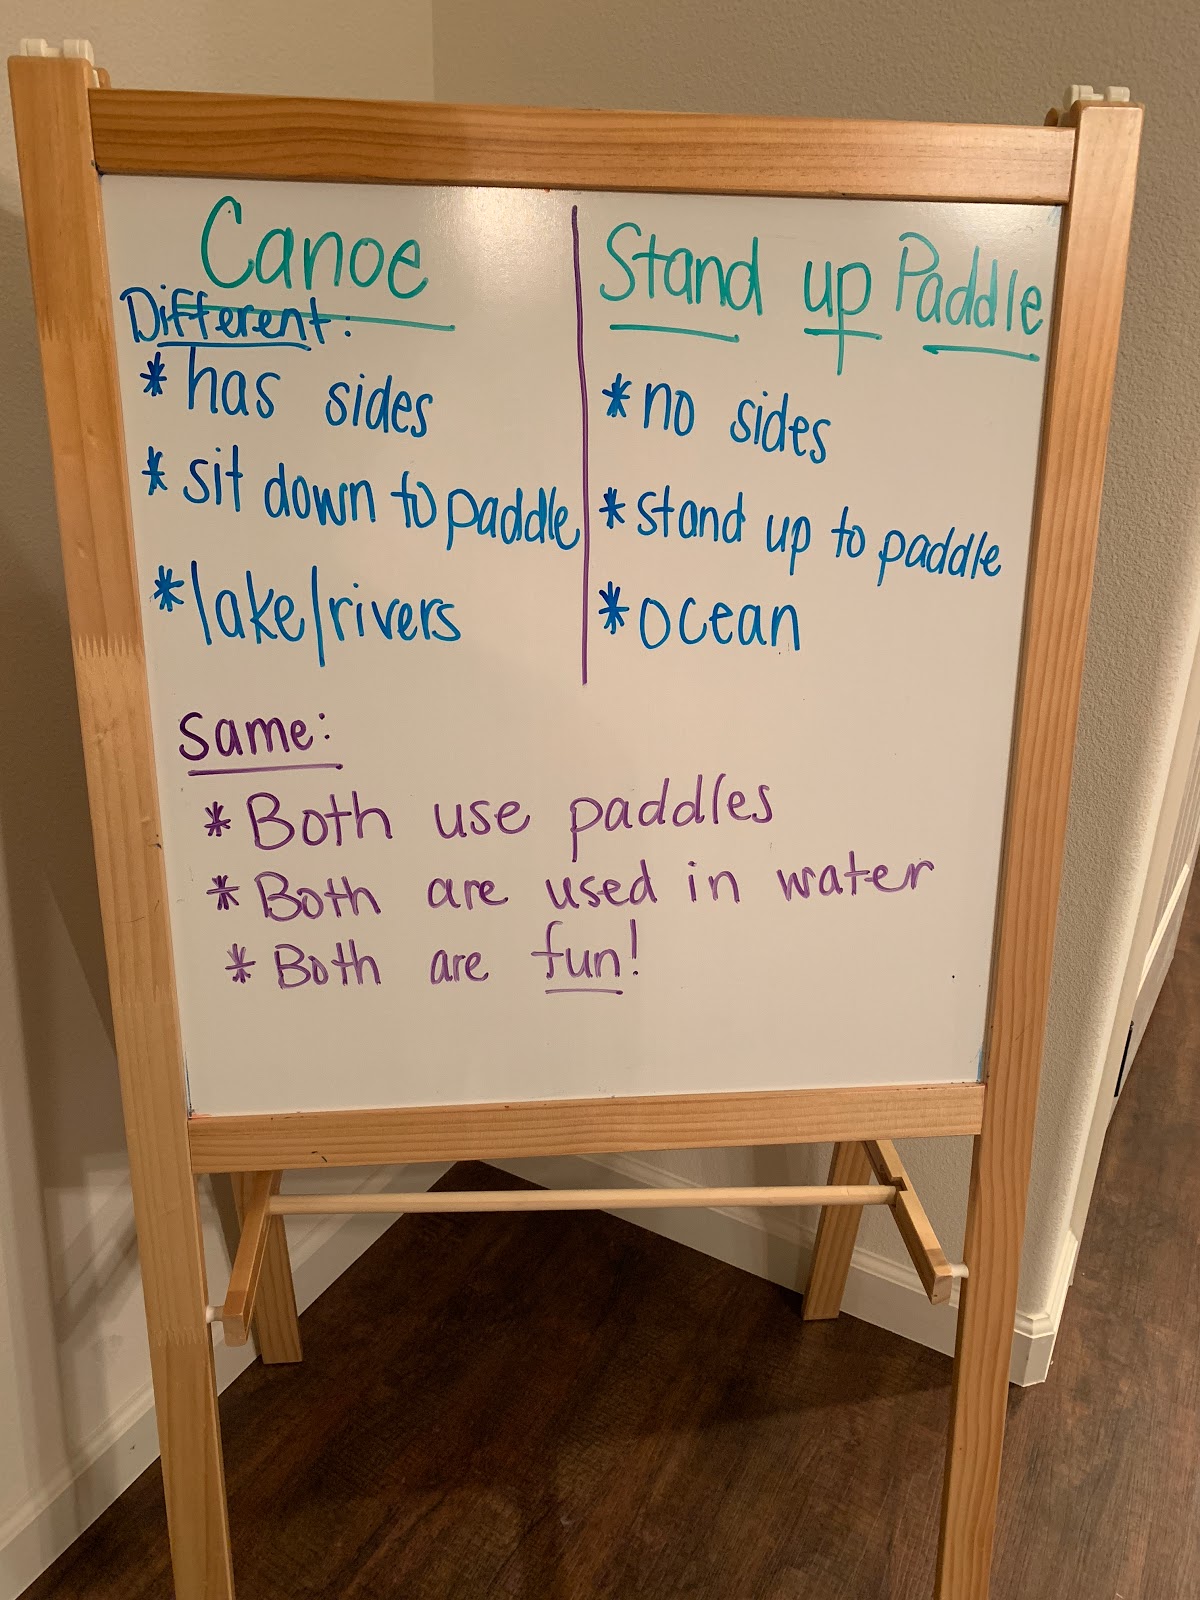 Canoe
Different:
* has sides
* sit down to paddle
* lake/rivers
Stand up Paddle
* no sides
* stand up to paddle
* ocean
Same:
* Both use paddles
* Both are used in water
* Both are fun!